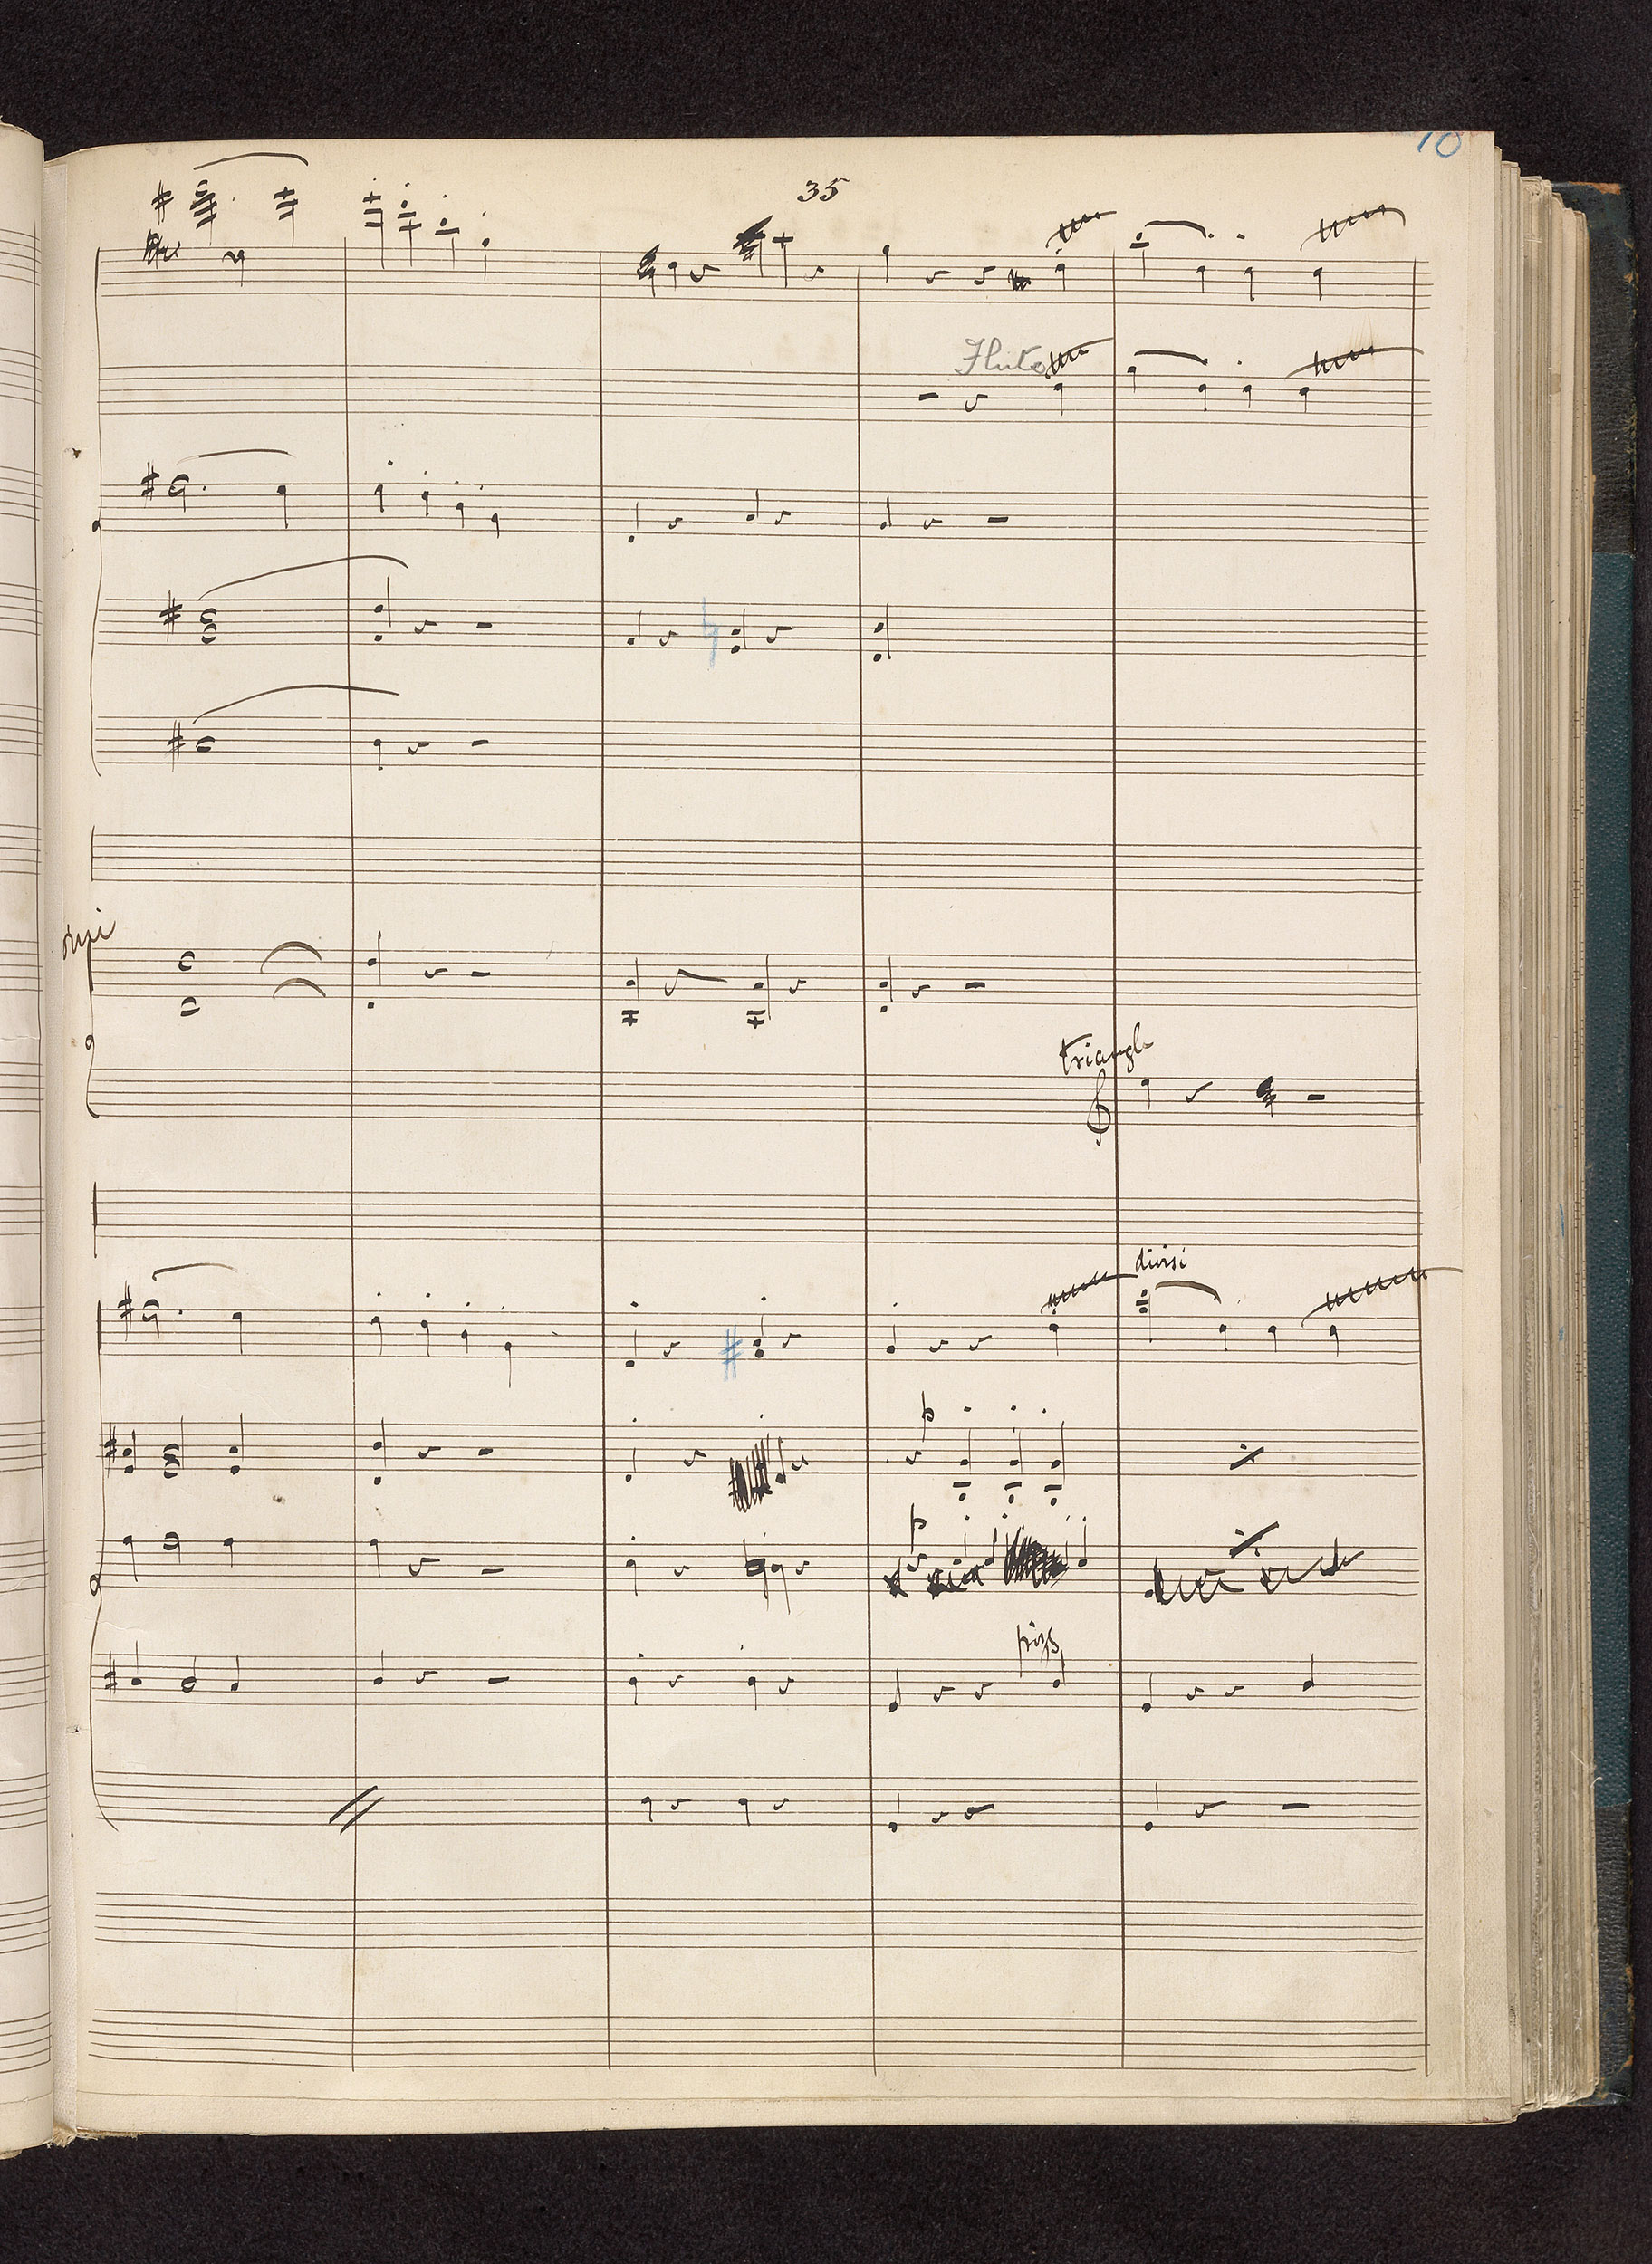 10
35
Flute
triangle
divisi
p
p
pizz